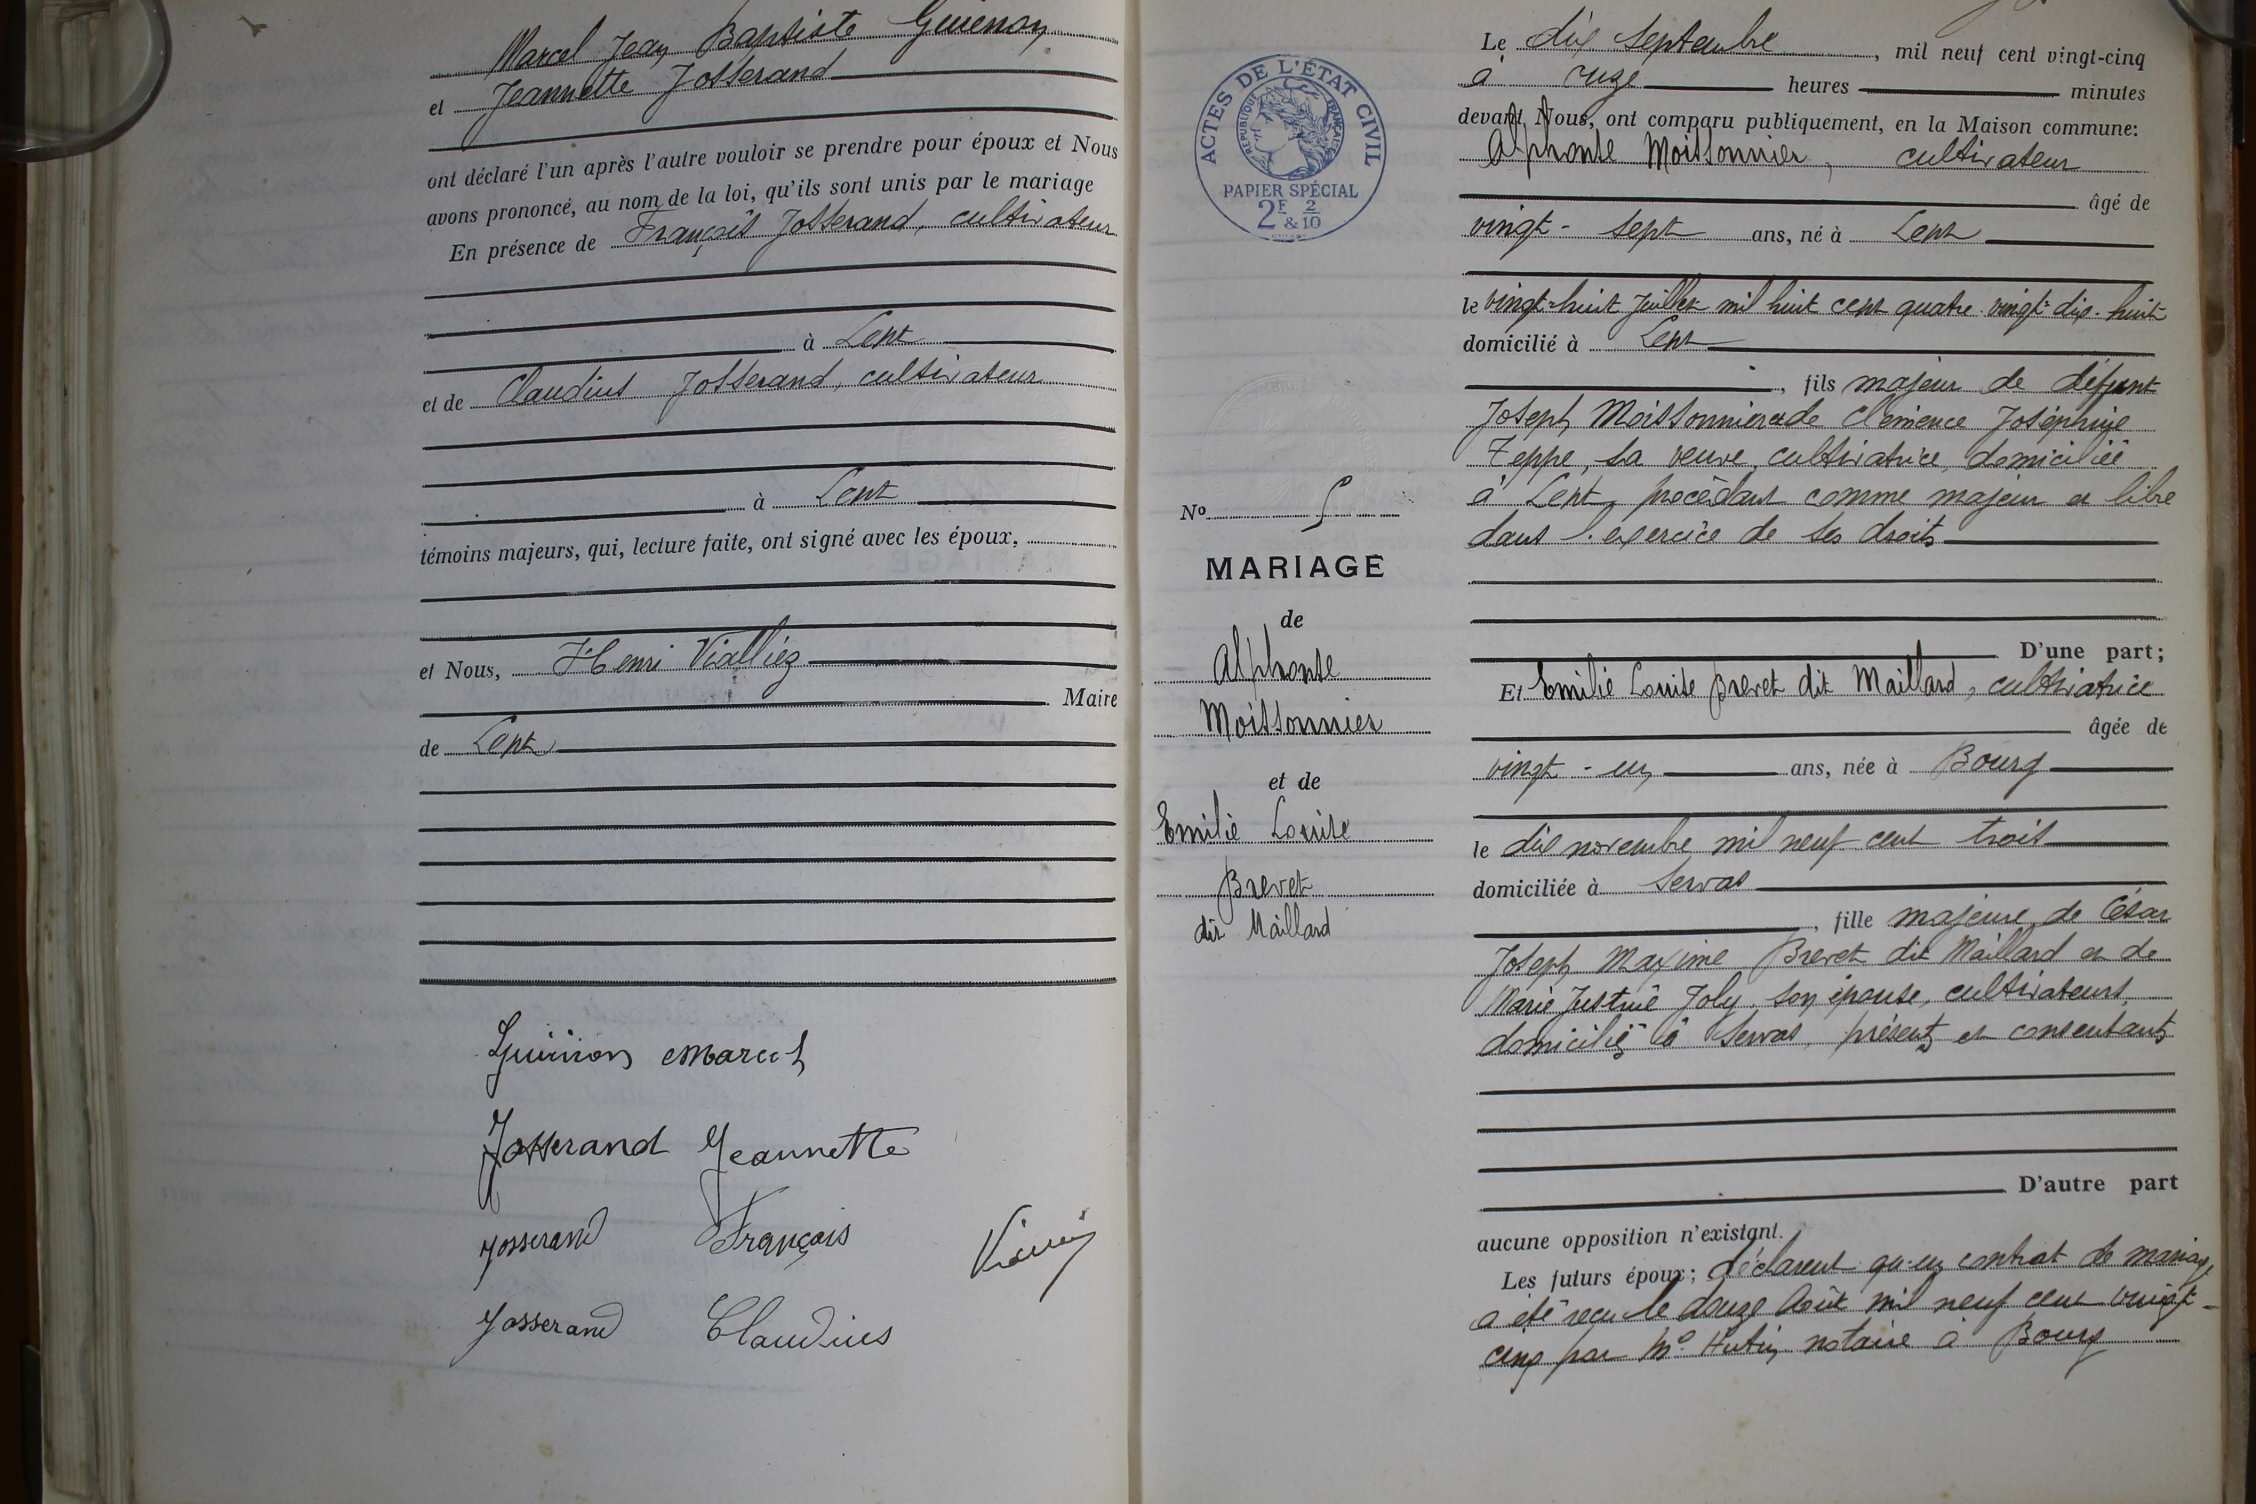 Marcel Jean Baptiste Guienon
et Jeannette Josserand
ont déclaré l'un après l'autre vouloir se prendre pour époux et Nous
avons prononcé, au nom de la loi, qu'ils sont unis par le mariage
En présence de François Josserand, cultivateur
à Lent
et de Claudius Josserand, cultivateur
à Lent
témoins majeurs, qui, lecture faite, ont signé avec les époux,
et Nous, Henri Vialliez
Maire
de Lent
Marcel
Josserand Jeannette
Josserand François
Josserand Claudius
ACTES DE L'ÉTAT CIVIL
RÉPUBLIQUE FRANÇAISE
PAPIER SPÉCIAL
2F & 2/10
No 5
MARIAGE
de
Alphonse
Moissonnier
et de
Emilie Louise
Brevet
dit Maillard
Le dix septembre, mil neuf cent vingt-cinq
à onze heures minutes
devant Nous, ont comparu publiquement, en la Maison commune:
Alphonse Moissonnier, cultivateur
âgé de
vingt-sept ans, né à Lent
le vingt-huit juillet mil huit cent quatre-vingt-dix-huit
domicilié à Lent
, fils majeur de défunt
Joseph Moissonnier et de Clémence Joséphine
Teppe, sa veuve, cultivatrice, domiciliée
à Lent, procédant comme majeur et libre
dans l'exercice de ses droits
D'une part;
Et Emilie Louise Brevet dit Maillard, cultivatrice
âgée de
vingt-un ans, née à Bourg
le dix novembre mil neuf cent trois
domiciliée à Servas
, fille majeure de César
Joseph Maxime Brevet dit Maillard et de
Marie Justine Joly, son épouse, cultivateurs,
domiciliés à Servas, présents et consentants
D'autre part
aucune opposition n'existant.
Les futurs époux; déclarent qu'un contrat de mariage
a été reçu le douze Août mil neuf cent vingt-
cinq par Me Hutin notaire à Bourg